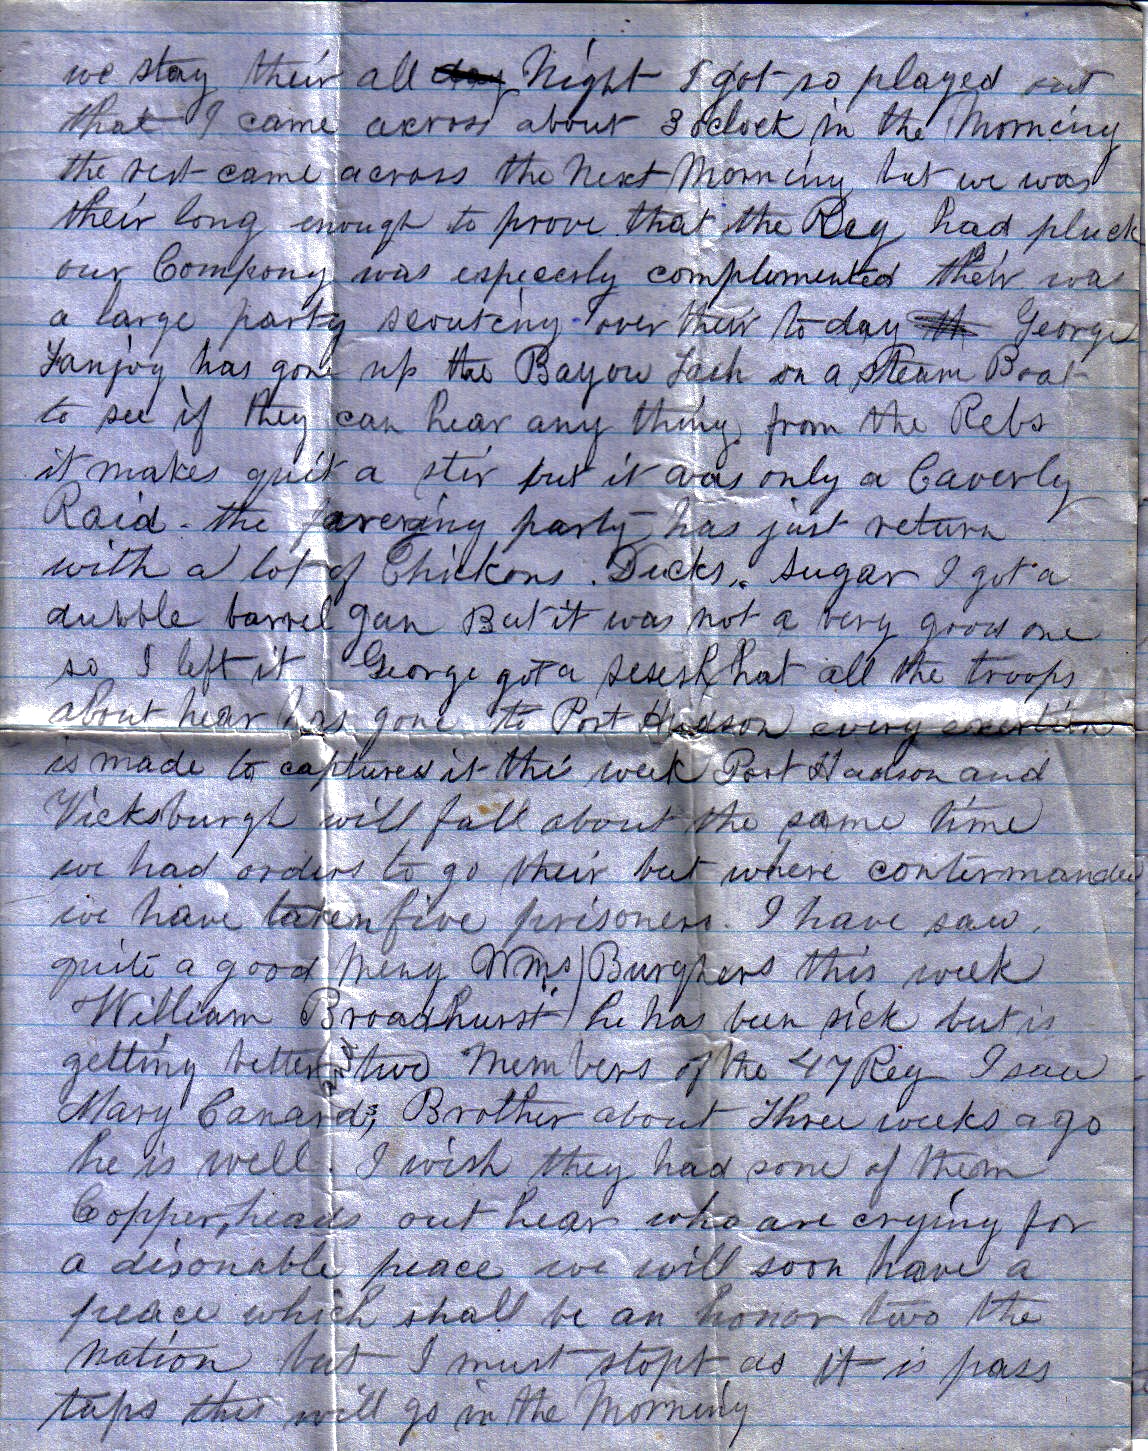 we stay their all day Night I got so played out
that I came across about 3 oclock in the Morning
the rest came across the Next Morning but we was
their long enough to prove that the Reg had pluck
our Compony was especerly complumented their was
a large party scouteing over their to day th George
Fanjoy has gone up the Bayou Tach on a Steam Boat
to see if they can hear any thing from the Rebs
it makes quit a stir but it was only a Caverly
Raid - the party has just return
with a lot of Chickons . Ducks, Sugar I got a
dubble barrel gun But it was not a very good one
so I left it George got a sesesh hat all the troops
about hear has gone to Port Hudson every exertion
is made to captured it this week Port Hudson and
Vicksburgh will fall about the same time
we had orders to go their but where contermanded
we have taken five prisoners. I have saw
quite a good meny Wms Burghers this week
William Broadhurst he has been sick but is
getting better and two Members of the 47 Reg I saw
Mary Canards Brother about Three weeks ago
he is well. I wish they had some of them
Copper,heads out hear who are crying for
a disonable peace we will soon have a
peace which shall be an honor two the
Nation but I must stopt as it is pass
taps this will go in the Morning